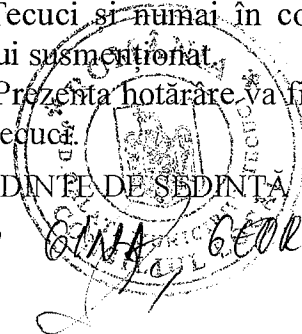 Tecuci și numai în co
ui susmenționat
Prezenta hotărâre va fi
ecuci.
DINTE DE ȘEDINȚĂ
GINA GEOR